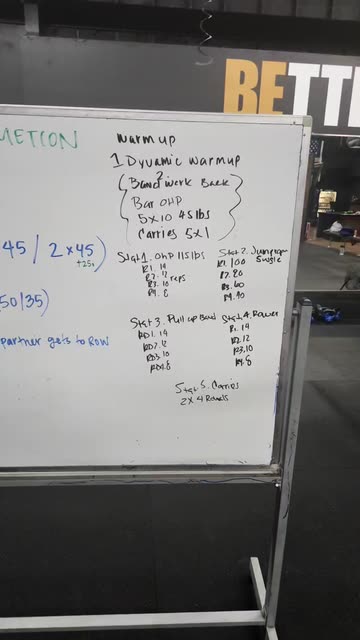 BETTE
METCON
45 / 2 x 45)
+25
50/35)
partner gets to ROW
warm up
1 Dynamic warmup
2
Band work Back
Bar OHP
5x10 45 lbs
Carries 5x1
Stat 1. OHP 115 lbs
R1. 14
R2. 12 reps
R3. 10
R4. 8
Stat 2. Jumprope
Single
R1. 100
R2. 80
R3. 60
R4. 40
Stat 3. Pull up Band
RD1. 14
RD2. 12
RD3. 10
RD4. 8
Stat 4. Rower
R1. 14
R2. 12
R3. 10
R4. 8
Stat 5. Carries
2 x 4 Rounds